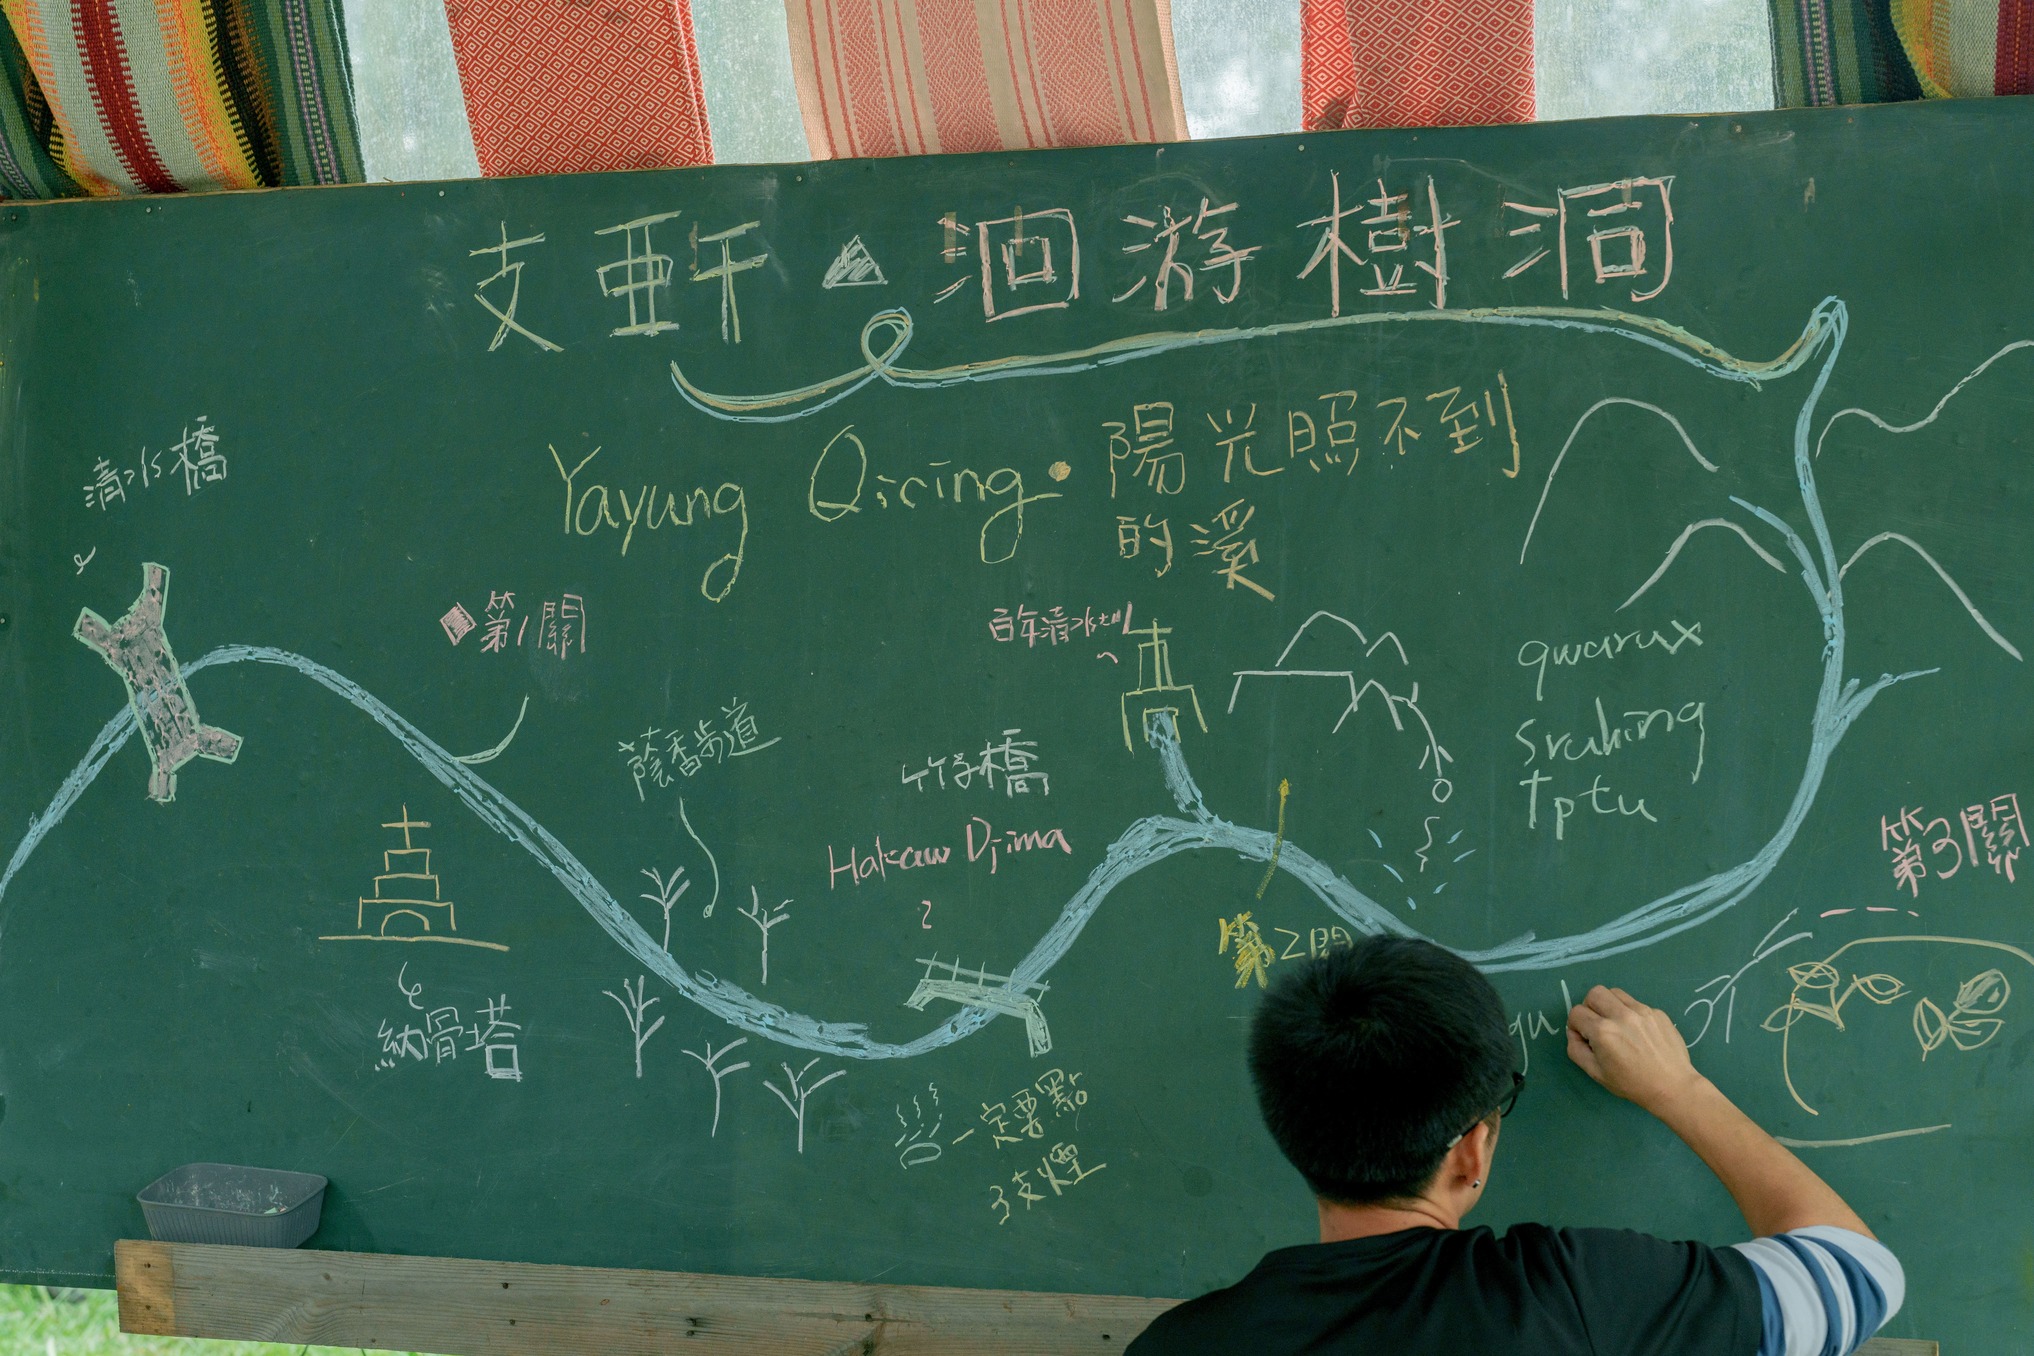 支亜干▲洄游樹洞
Yayung Qicing・陽光照不到
的溪
清水橋
第1關
百年清水
qwarux
sruhing
Tptu
蔭香步道
竹仔橋
Hakaw Djima
第3關
第2關
納骨塔
gu
一定要點
3支煙